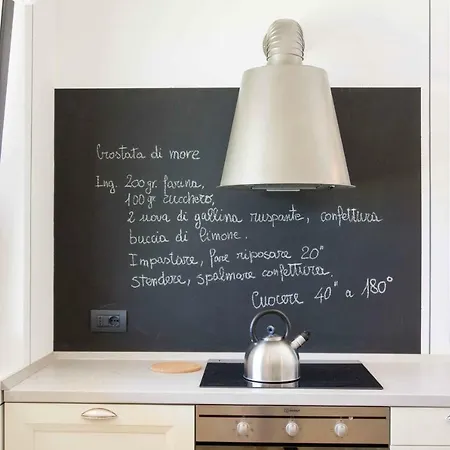 Crostata di more
Ing. 200 gr. farina,
100 gr zucchero,
2 uova di gallina ruspante, confettura
buccia di limone.
Impastare, fare riposare 20"
stendere, spalmare confettura.
Cuocere 40" a 180°